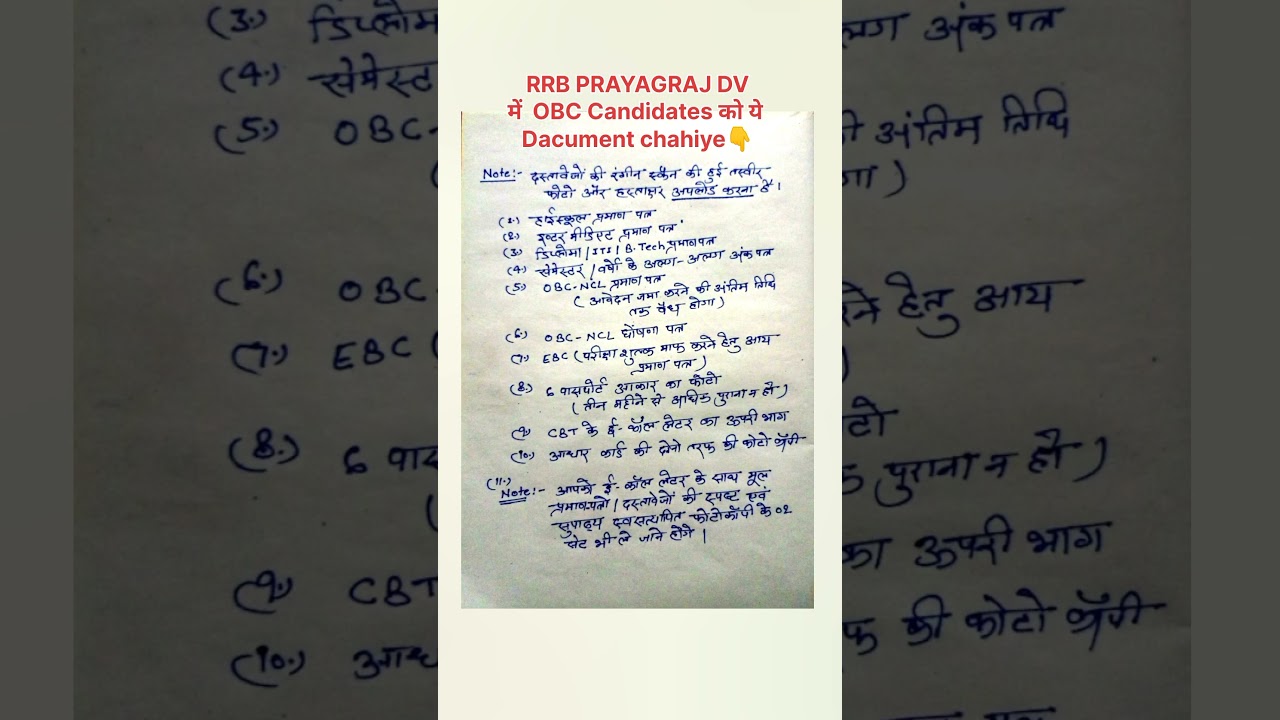 RRB PRAYAGRAJ DV
में OBC Candidates को ये
Dacument chahiye👇
Note:- दस्तावेजों की रंगीन स्कैन की हुई तस्वीर
फोटो और हस्ताक्षर अपलोड करना है।
(1.) हाईस्कूल प्रमाण पत्र
(2.) इण्टरमीडिएट प्रमाण पत्र
(3.) डिप्लोमा/ITI/B.Tech प्रमाणपत्र
(4.) सेमेस्टर/वर्षो के अलग-अलग अंक पत्र
(5.) OBC-NCL प्रमाण पत्र
(आवेदन जमा करने की अंतिम तिथि
तक वैध होगा)
(6.) OBC-NCL घोषणा पत्र
(7.) EBC (परीक्षा शुल्क माफ करने हेतु आय
प्रमाण पत्र)
(8.) 6 पासपोर्ट आकार का फोटो
(तीन महीने से अधिक पुराना न हो)
(9.) CBT के ई-कॉल लेटर का ऊपरी भाग
(10.) आधार कार्ड की दोनो तरफ की फोटो कॉपी
(11.)
Note:- आपको ई-कॉल लेटर के साथ मूल
प्रमाणपत्रो/दस्तावेजों की स्पष्ट एवं
सुपाठ्य स्वसत्यापित फोटोकॉपी के 02
सेट भी ले जाने होंगे।
(3.) डिप्लोम
(4.) सेमेस्ट
(5.) OBC-
(6.) OBC-
(7.) EBC (
(8.) 6 पास
(9.) CBT
(10.) आध
लग अंक पत्र
ी अंतिम तिथि
गा)
रने हेतु आय
)
टो
पुराना न हो)
का ऊपरी भाग
फ की फोटो कॉपी